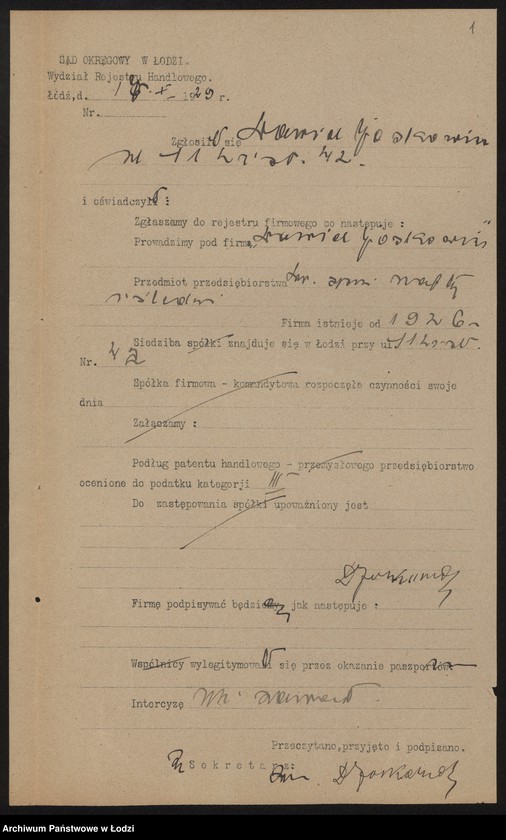 1
SĄD OKRĘGOWY W ŁODZI.
Wydział Rejestru Handlowego.
Łódź,d. X 1929 r.
Nr.
Zgłosił się Dawid Joskowicz
ul 11 42.
i oświadczył:
Zgłaszamy do rejestru firmowego co następuje :
Prowadzimy pod firmą „Dawid Joskowicz"
Przedmiot przedsiębiorstwa nafty
i śledzi
Firma istnieje od 1926
Siedziba spółki znajduje się w Łodzi przy ul 11
Nr. 42
Spółka firmowa - komandytowa rozpoczęła czynności swoje
dnia
Załączamy :
Podług patentu handlowego - przemysłowego przedsiębiorstwo
ocenione do podatku kategorji III
Do zastępowania spółki upoważniony jest
Firmę podpisywać będzie jak następuje :
Wspólnicy wylegitymował się przez okazanie paszportu
Intercyzę nie zawarł
Przeczytano,przyjęto i podpisano.
Sekretarz: